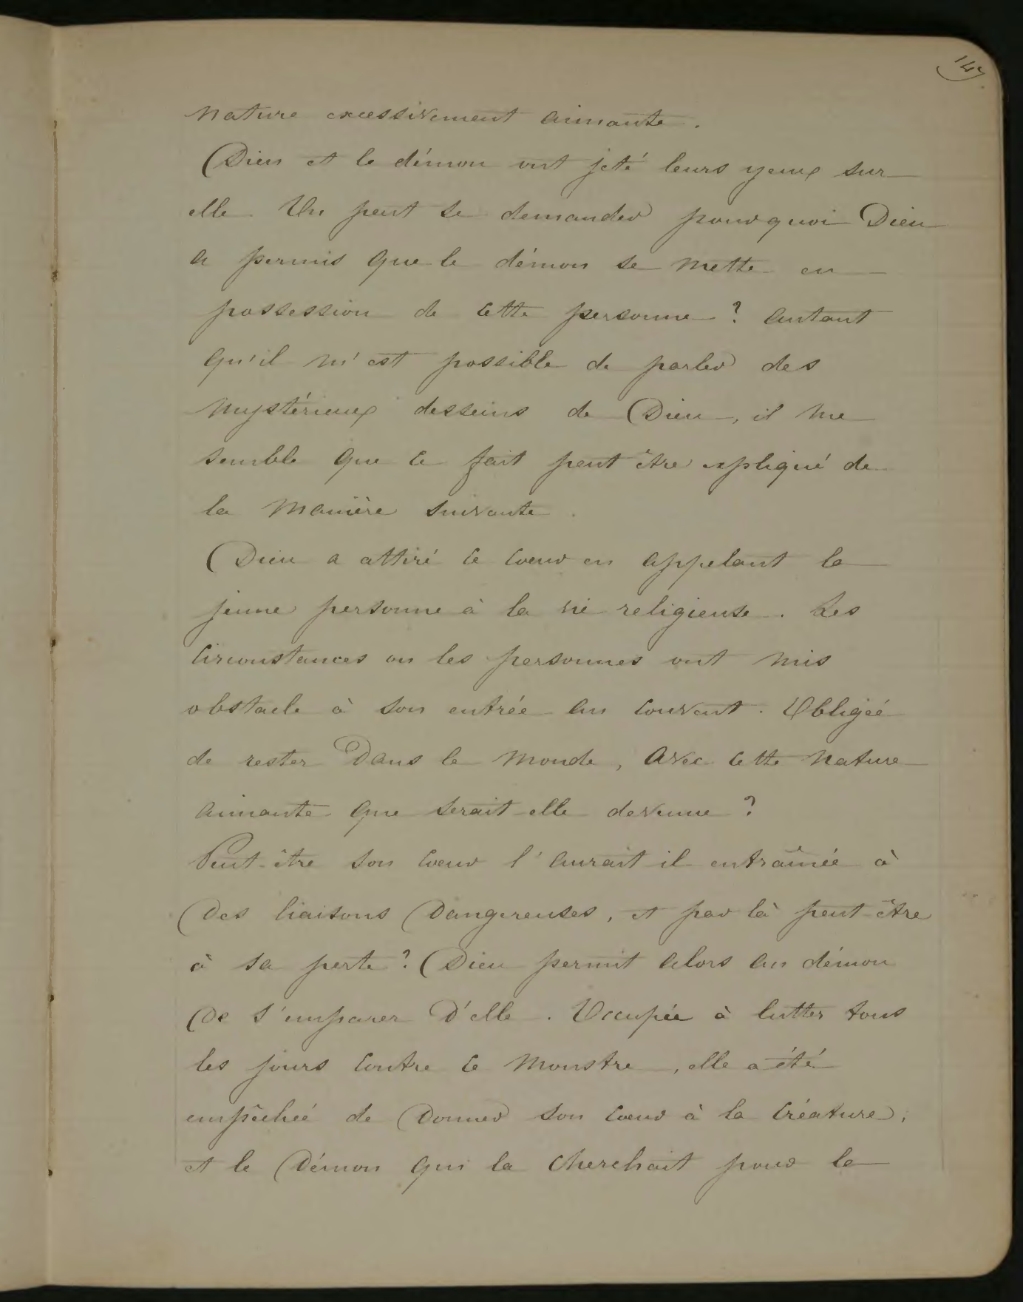 147
nature excessivement aimante.
Dieu et le démon ont jeté leurs yeux sur
elle. On peut se demander pourquoi Dieu
a permis que le démon se mette en
possession de cette personne ? autant
qu'il m'est possible de parler des
mystérieux desseins de Dieu, il me
semble que ce fait peut être expliqué de
la manière suivante.
Dieu a attiré ce coeur en appelant la
jeune personne à la vie religieuse. Les
circonstances ou les personnes ont mis
obstacle à son entrée au couvent. Obligée
de rester dans le monde, avec cette nature
aimante que serait-elle devenue ?
Peut-être son coeur l'aurait-il entraînée à
des liaisons dangereuses, et par là peut-être
à sa perte ? Dieu permit alors au démon
de s'emparer d'elle. Occupée à lutter tous
les jours contre ce monstre, elle a été
empêchée de donner son coeur à la créature,
et le Démon qui la cherchait pour la